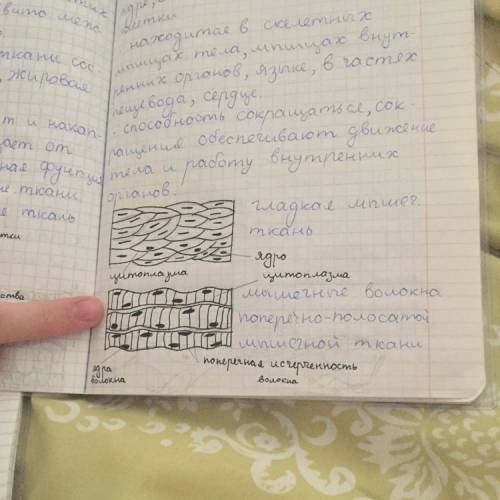 ткани сос-
жировая
т и накап-
щает от
ткани
ткань
тки
ства
клетки
находится в скелетных
мышцах тела, мышцах внут-
ренних органов, языке, в частях
пищевода, сердце.
- способность сокращаться, сок-
ращения обеспечивают движение
тела и работу внутренних
органов.
гладкая мышеч.
ткань
ядро
цитоплазма
цитоплазма
мышечные волокна
поперечно-полосатой
мышечной ткани
ядра
волокна
поперечная исчерченность
волокна